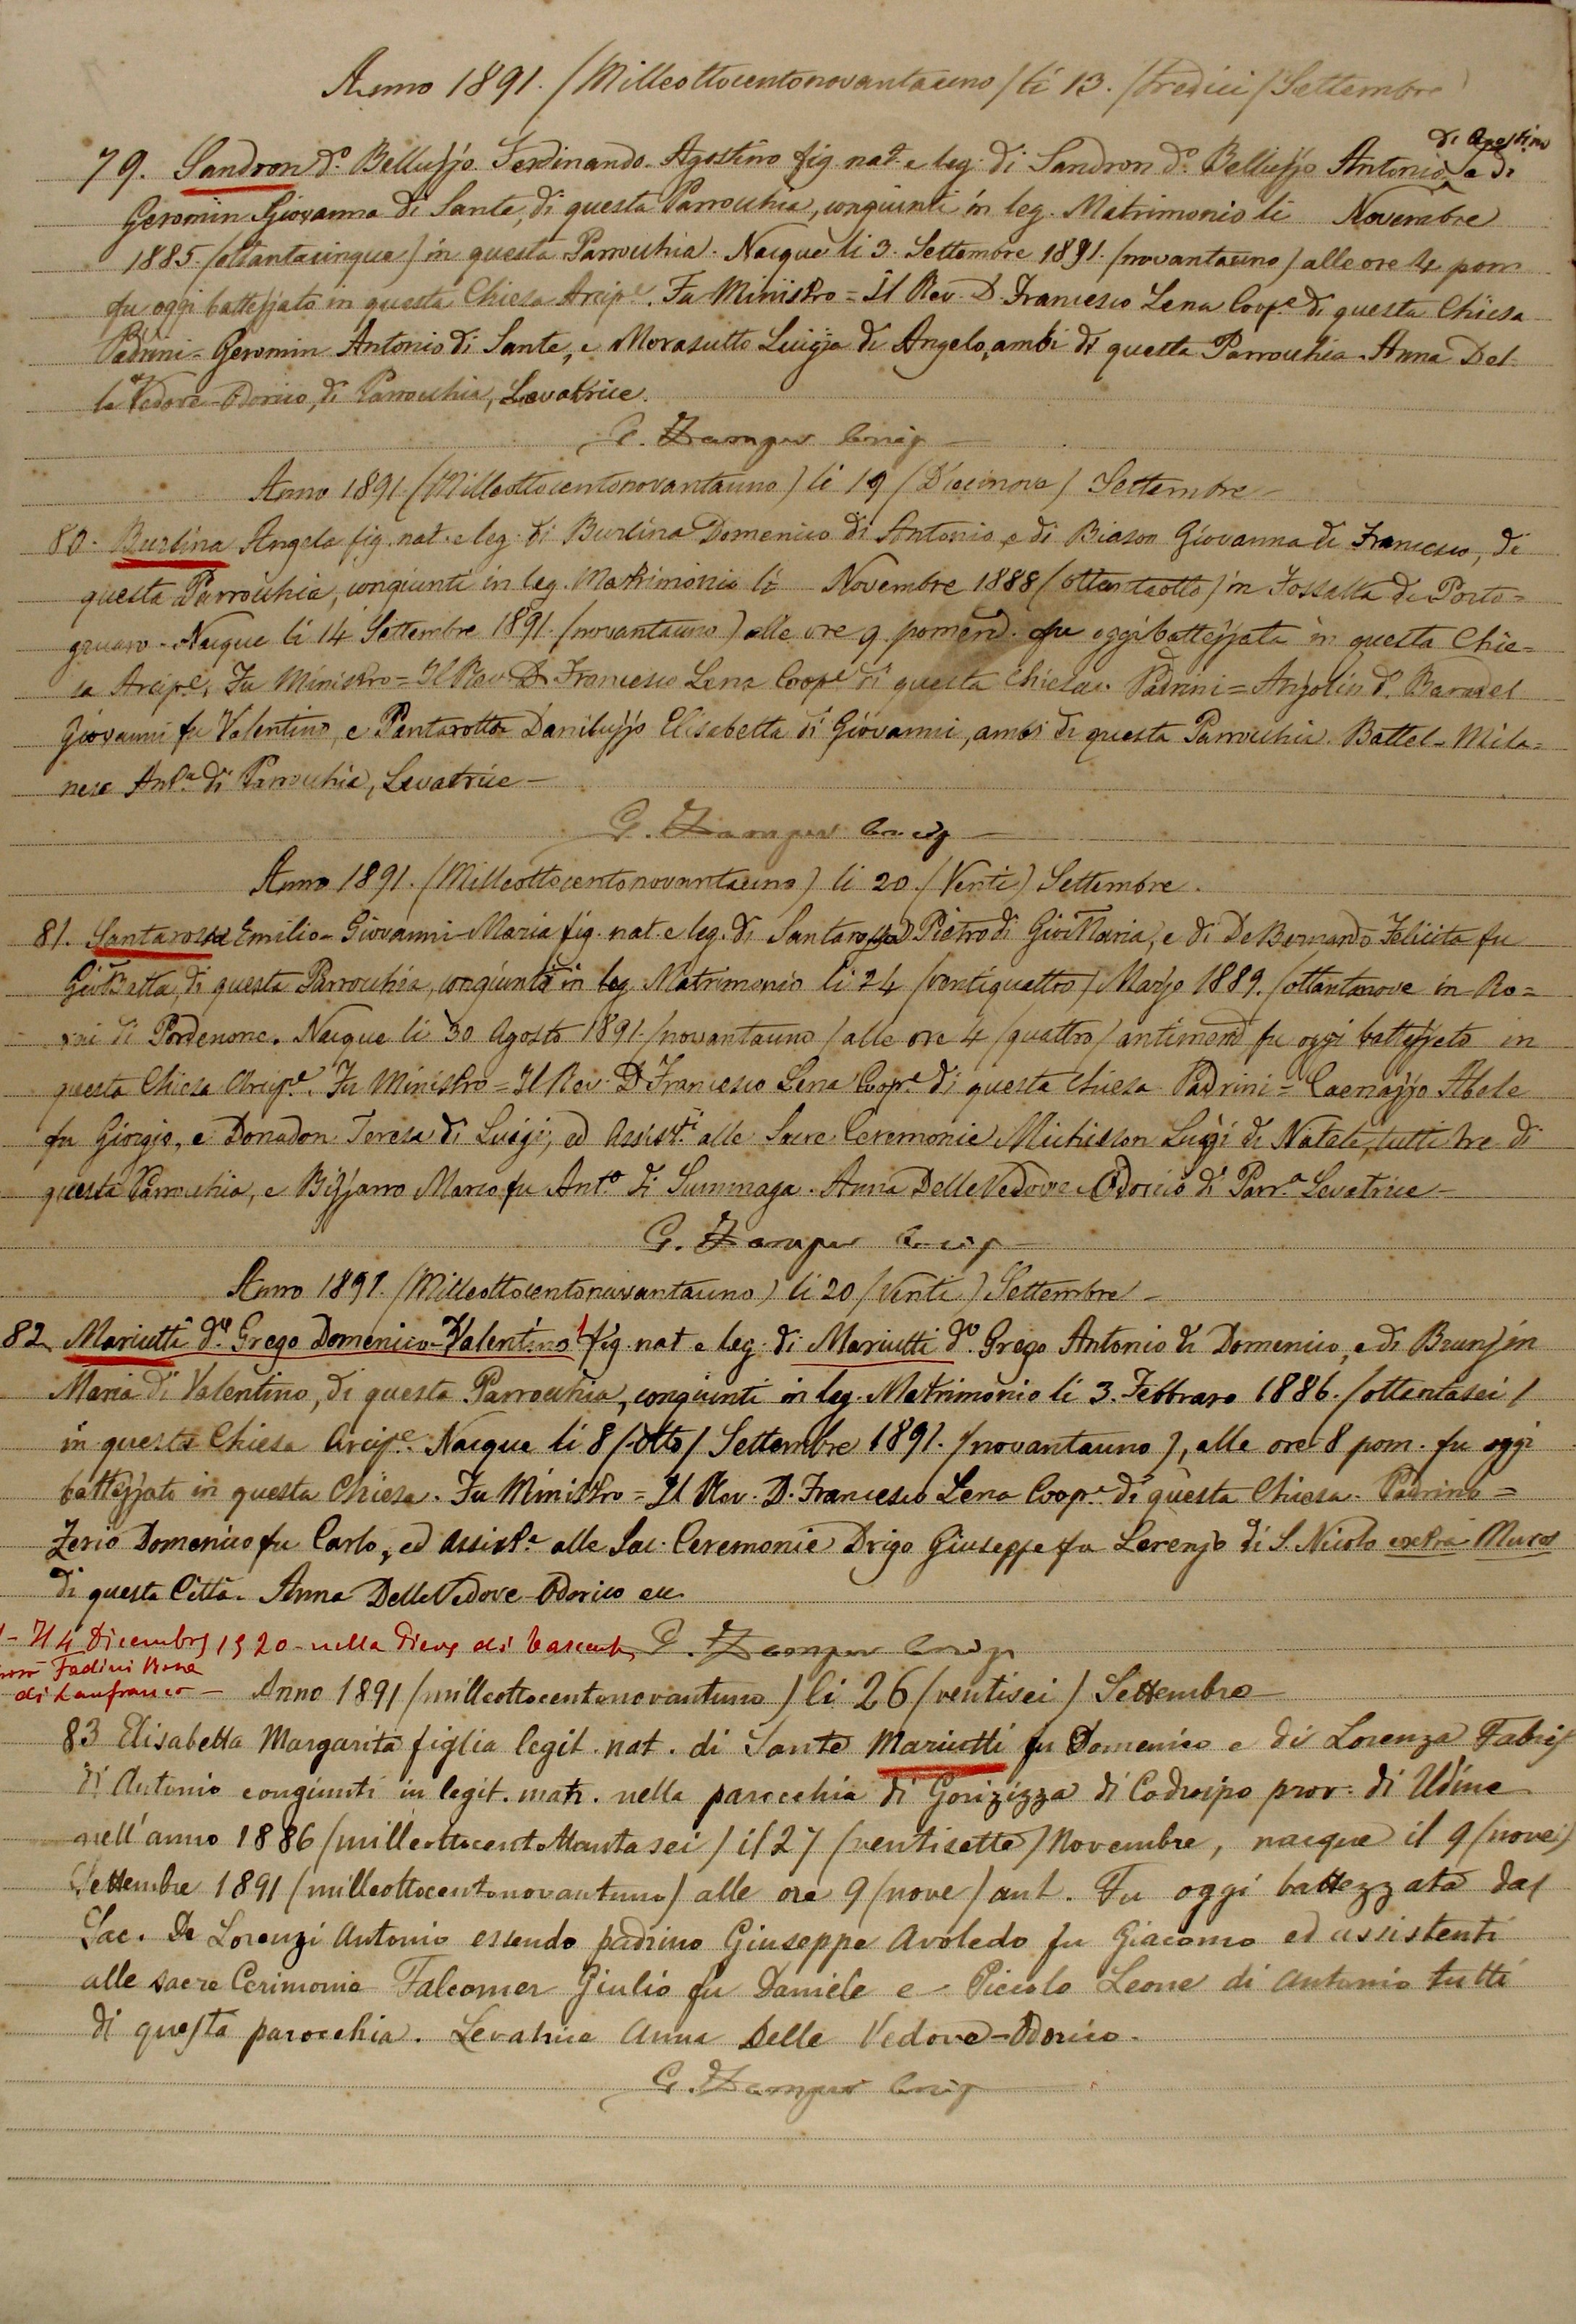 Anno 1891. (Milleottocentonovantauno) li 13. (tredici) Settembre
di Agostino
79. Sandron do. Belluzzo Ferdinando Agostino fig. nat. e leg. di Sandron do. Belluzzo Antonio, e di
Geromin Giovanna di Sante, di questa Parrocchia, congiunti in leg. Matrimonio li Novembre
1885. (ottantacinque) in questa Parrocchia. Nacque li 3. Settembre 1891. (novantauno) alle ore 4 pom
fu oggi battezzato in questa Chiesa Arcip.e. Fu Ministro = Il Rev. D. Francesco Lena Coop.e di questa Chiesa
Padrini = Geromin Antonio di Sante, e Morasutto Luigia di Angelo, ambi di questa Parrocchia. Anna Del-
le Vedove-Odorico, di Parrocchia, Levatrice.
G.
Anno 1891. (Milleottocentonovantauno) li 19 (Diecinove) Settembre
80. Burlina Angela fig. nat. e leg. di Burlina Domenico di Antonio, e di Biason Giovanna di Francesco, di
questa Parrocchia, congiunti in leg. Matrimonio li Novembre 1888 (ottantaotto) in Fossalta di Porto=
gruaro. Nacque li 14 Settembre 1891. (novantauno) alle ore 9. pomerid. fu oggi battezzata in questa Chie=
sa Arcip.e. Fu Ministro = Il Rev. D. Francesco Lena Coop.e di questa Chiesa. Padrini = Anzolin do. Baradel
Giovanni fu Valentino, e Pantarotto Daniluzzo Elisabetta di Giovanni, ambi di questa Parrocchia. Battel-Mila=
nese Ant.a di Parrocchia, Levatrice
G.
Anno 1891. (Milleottocentonovantauno) li 20. (Venti) Settembre.
81. Santarossa Emilio-Giovanni-Maria fig. nat. e leg. di Santarossa Pietro di Gio: Maria, e di De Bernardo Felicita fu
Gio: Batta, di questa Parrocchia, congiunti in leg. Matrimonio li 24 (ventiquattro) Marzo 1889. (ottantanove in Ro=
rai di Pordenone. Nacque li 30 Agosto 1891. (novantauno) alle ore 4 (quattro) antimerid fu oggi battezzato in
questa Chiesa Arcip.e. Fu Ministro = Il Rev. D. Francesco Lena Coop.e di questa Chiesa Padrini = Caenazzo Abele
fu Giorgio, e Donadon Teresa di Luigi, ed Assist.ti alle Sacre Ceremonie Michielon Luigi di Natale, tutti tre di
questa Parrocchia, e Bizzarro Marco fu Ant.o di Summaga. Anna Delle Vedove-Odorico di Parr.a Levatrice
G.
Anno 1891. (Milleottocentonovantauno) li 20 (Venti) Settembre
82. Mariutti do. Grego Domenico-Valentino 1 fig. nat. e leg. di Mariutti do. Grego Antonio di Domenico, e di Brunzin
Maria di Valentino, di questa Parrocchia, congiunti in leg. Matrimonio li 3. Febbraro 1886. (ottantasei)
in questa Chiesa Arcip.e. Nacque li 8 (otto) Settembre 1891. (novantauno), alle ore 8 pom. fu oggi
battezzato in questa Chiesa. Fu Ministro = Il Rev. D. Francesco Lena Coop.e di questa Chiesa. Padrino =
Zerio Domenico fu Carlo, ed assist.e alle Sac. Ceremonie Drigo Giuseppe fu Lorenzo di S. Nicolo extra Muros
di questa Città. Anna Delle Vedove-Odorico
1 - Il 4 Dicembre 1920 - nella Pieve di
G.
Fadini Rosa
di Lanfranco -
Anno 1891 (milleottocentonovantuno) li 26 (ventisei) Settembre
83 Elisabetta Margarita figlia legit. nat. di Sante Mariutti fu Domenico e di Lorenza Fabris
di Antonio congiunti in legit. matr. nella parocchia di Gorizizza di Codroipo prov. di Udine
nell'anno 1886 (milleottocentottantasei) il 27 (ventisette) Novembre, nacque il 9 (nove)
Settembre 1891 (milleottocentonovantuno) alle ore 9 (nove) ant. Fu oggi battezzata dal
Sac. De Lorenzi Antonio essendo padrino Giuseppe Avoledo fu Giacomo ed assistenti
alle sacre Cerimonie Falcomer Giulio fu Daniele e Piccolo Leone di Antonio tutti
di questa parocchia. Levatrice Anna Delle Vedove-Odorico.
G.